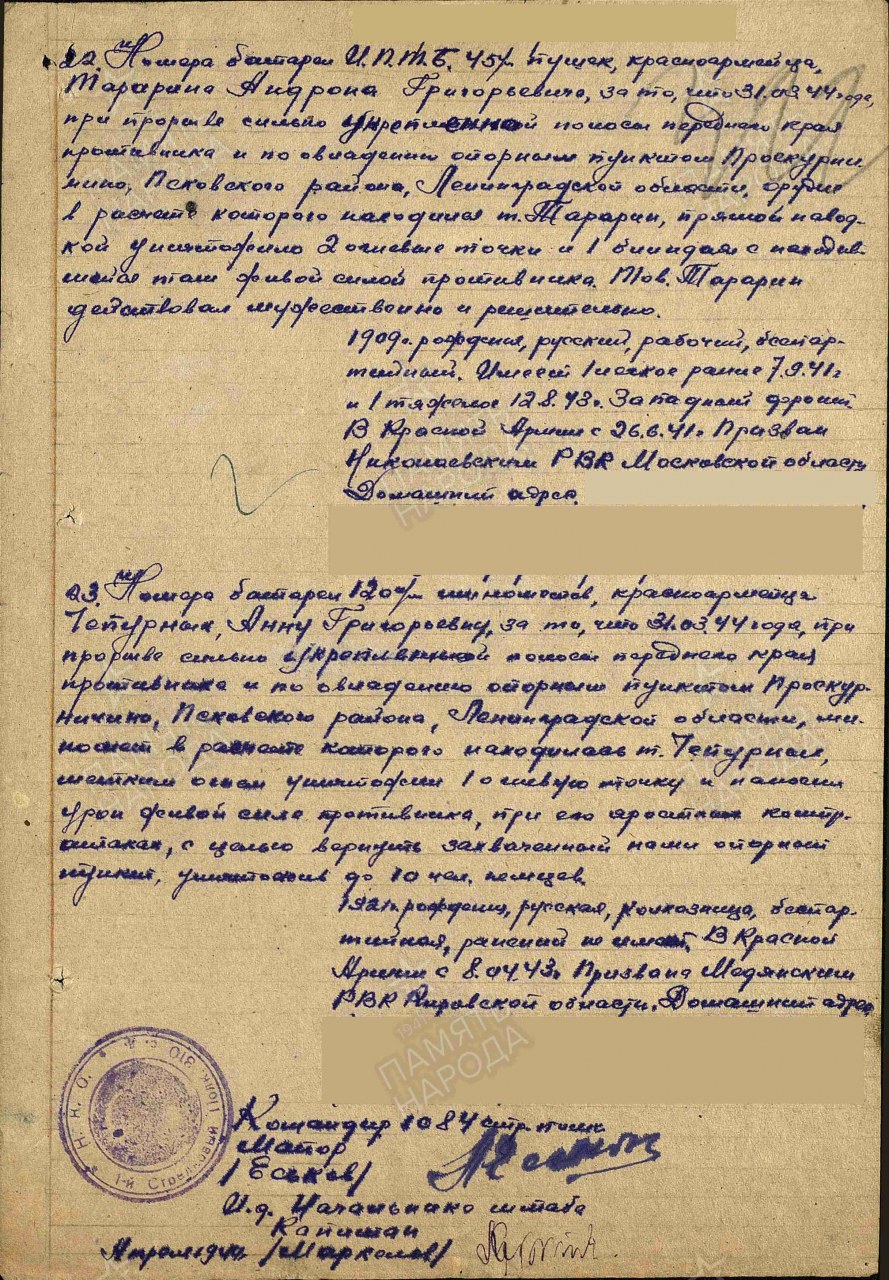 22. Номера батареи И.П.Т.Б. 45 м/м пушек, красноармейца,
Тарарина Андрона Григорьевича, за то, что 31.03.44 года,
при прорыве сильно укрепленной полосы переднего края
противника и по овладению опорным пунктом Проскурни
нино, Псковского района, Ленинградской области, орудие
в расчете которого находился т. Тарарин, прямой навод-
кой уничтожило 2 огневые точки и 1 блиндаж с находив-
шейся там живой силой противника. Тов. Тарарин
действовал мужественно и решительно.
1909г. рождения, русский, рабочий, беспар-
тийный. Имеет 1 легкое ранение 7.9.41г
и 1 тяжелое 12.8.43г. Западный фронт
В Красной Армии с 26.6.41г Призван
РВК Московской области
Домашний адрес
23. Номера батареи 120 м/м минометов, красноармейца
Чепурных, Анну Григорьевну, за то, что 31.03.44 года, при
прорыве сильно укрепленной полосы переднего края
противника и по овладению опорным пунктом Проскур-
нинино, Псковского района, Ленинградской области, ми-
номет в расчете которого находилась т. Чепурных,
метким огнем уничтожил 1 огневую точку и наносил
урон живой силе противника, при его яростных контр-
атаках, с целью вернуть захваченный нами опорный
пункт, уничтожив до 10 чел. немцев.
1921г. рождения, русская, колхозница, беспар-
тийная, ранений не имеет. В Красной
Армии с 8.04.43г Призвана Медянским
РВК Кировской области. Домашний адрес
ПАМЯТЬ
НАРОДА
Н.К.О. * 1-й Стрелковый Полк 310 с.д. *
Командир 1084 стр. полка
Майор
/Еськов/
И.д. Начальника штаба
Капитан
/Маркелов/